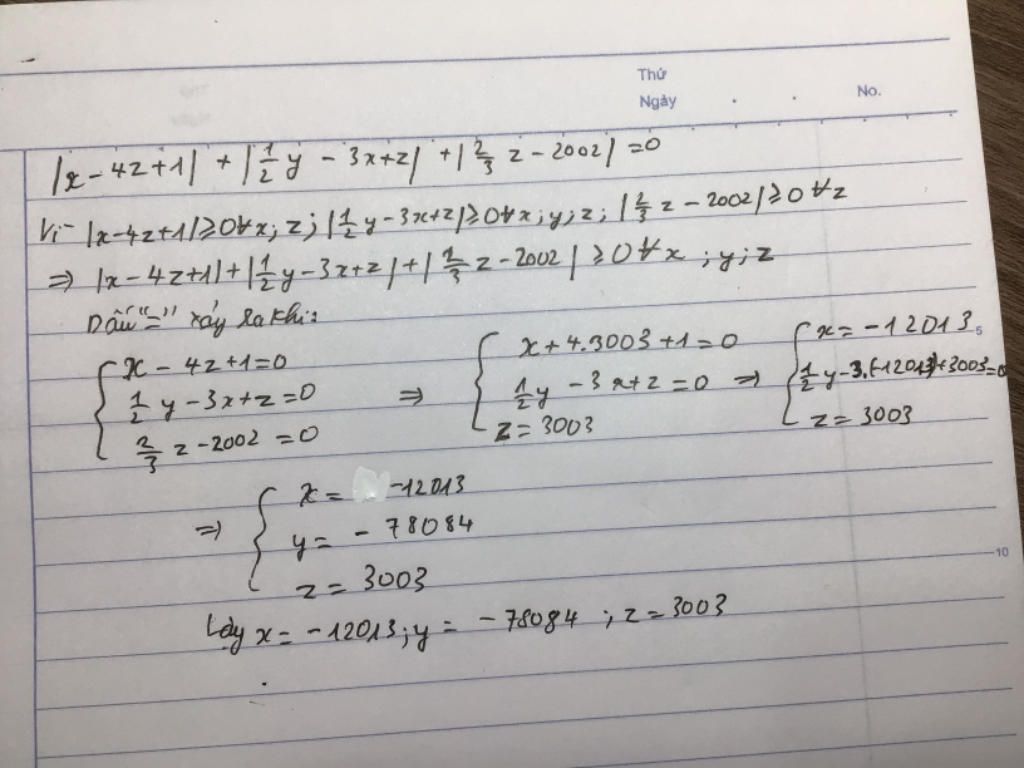 Thứ
Ngày . . No.
|x - 4z + 1| + |1/2 y - 3x + z| + |2/3 z - 2002| = 0
Vì |x - 4z + 1| ≥ 0 ∀ x; z; |1/2 y - 3x + z| ≥ 0 ∀ x; y; z; |2/3 z - 2002| ≥ 0 ∀ z
⇒ |x - 4z + 1| + |1/2 y - 3x + z| + |2/3 z - 2002| ≥ 0 ∀ x; y; z
Dấu "=" xảy ra khi:
{ x - 4z + 1 = 0 ⇒ { x + 4.3003 + 1 = 0 ⇒ { x = -12013 5
1/2 y - 3x + z = 0 1/2 y - 3x + z = 0 1/2 y - 3.(-12013) + 3003 = 0
2/3 z - 2002 = 0 z = 3003 z = 3003
⇒ { x = -12013
y = - 78084
z = 3003 10
Vậy x = - 12013; y = - 78084; z = 3003